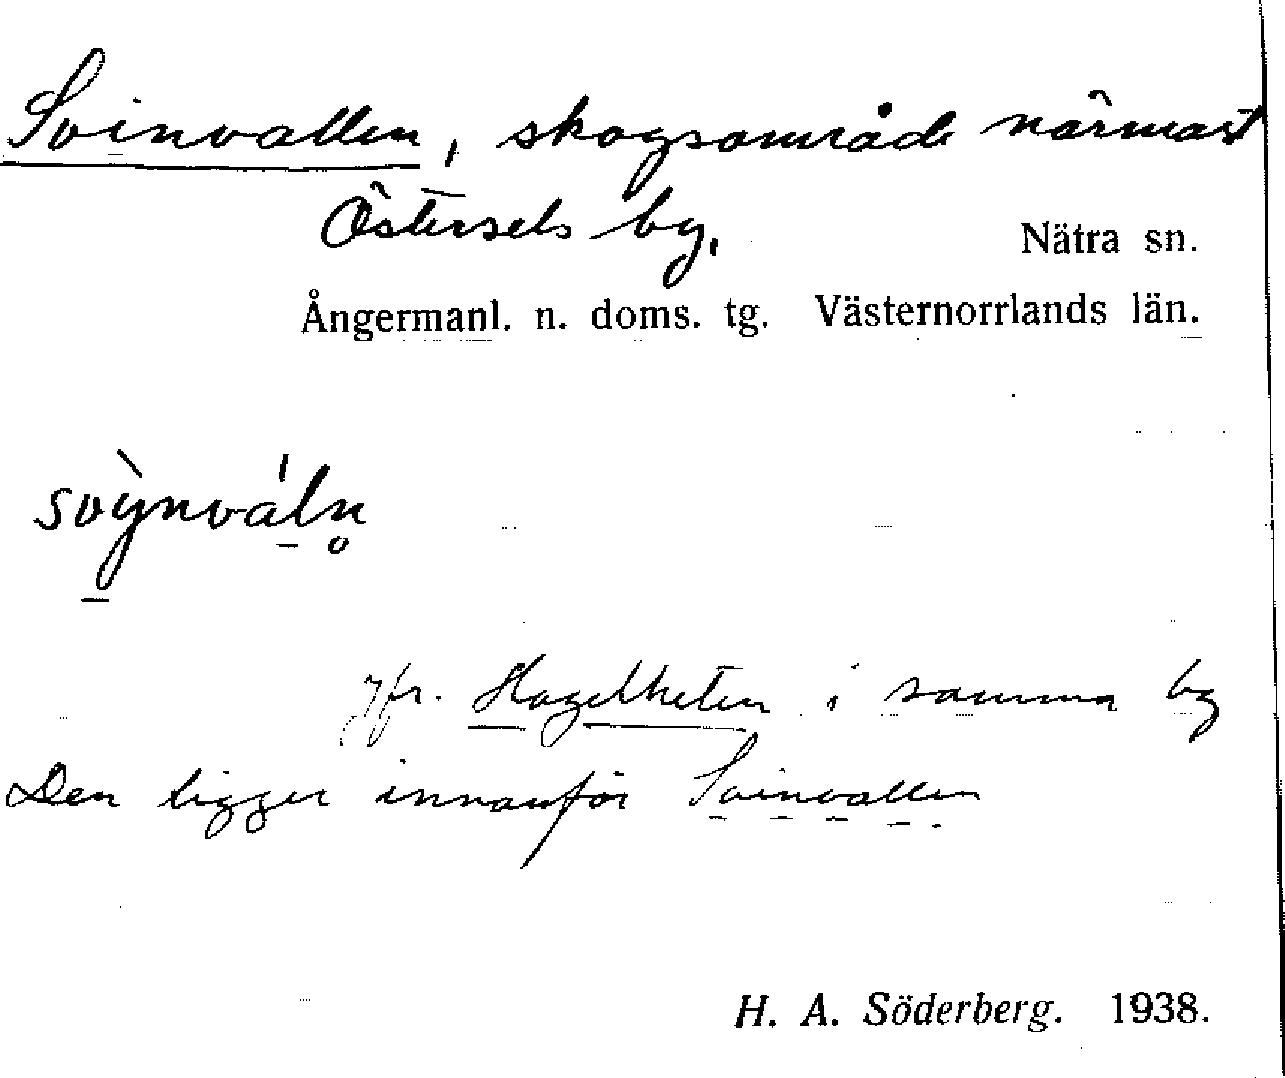 Svinvallen, skogsområde närmast
Östersels by.
Nätra sn.
Ångermanl. n. doms. tg. Västernorrlands län.
svỳnváln̥
jfr. i samma by
Den ligger innanför Svinvallen
H. A. Söderberg. 1938.